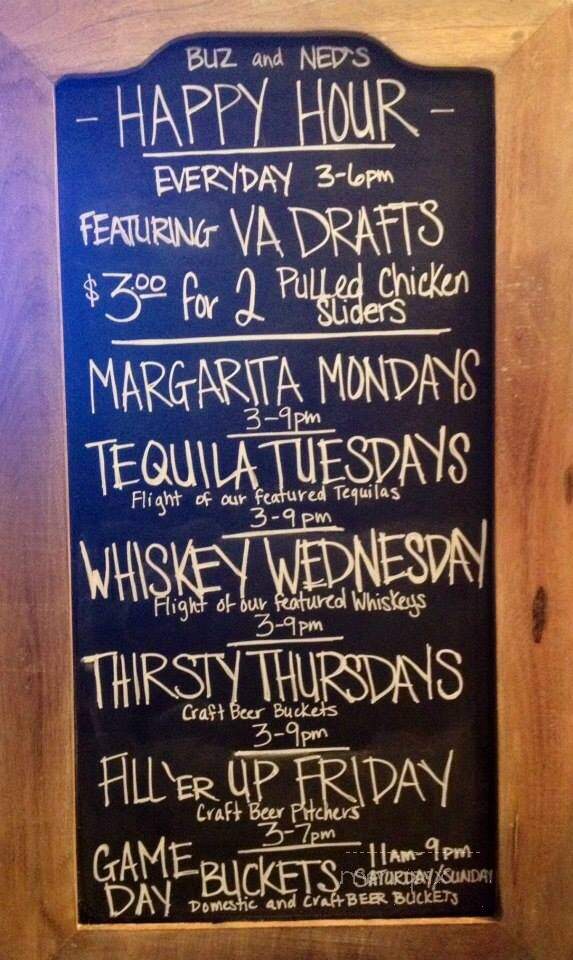 BUZ and NED'S
- HAPPY HOUR -
EVERYDAY 3-6pm
FEATURING VA DRAFTS
$3.00 for 2 Pulled Chicken Sliders
MARGARITA MONDAYS
3-9pm
TEQUILA TUESDAYS
Flight of our featured Tequilas
3-9pm
WHISKEY WEDNESDAY
Flight of our featured Whiskeys
3-9pm
THIRSTY THURSDAYS
Craft Beer Buckets
3-9pm
FILL'ER UP FRIDAY
Craft Beer Pitchers
3-7pm
GAME DAY BUCKETS 11am-9pm SATURDAY/SUNDAY
Domestic and Craft BEER BUCKETS